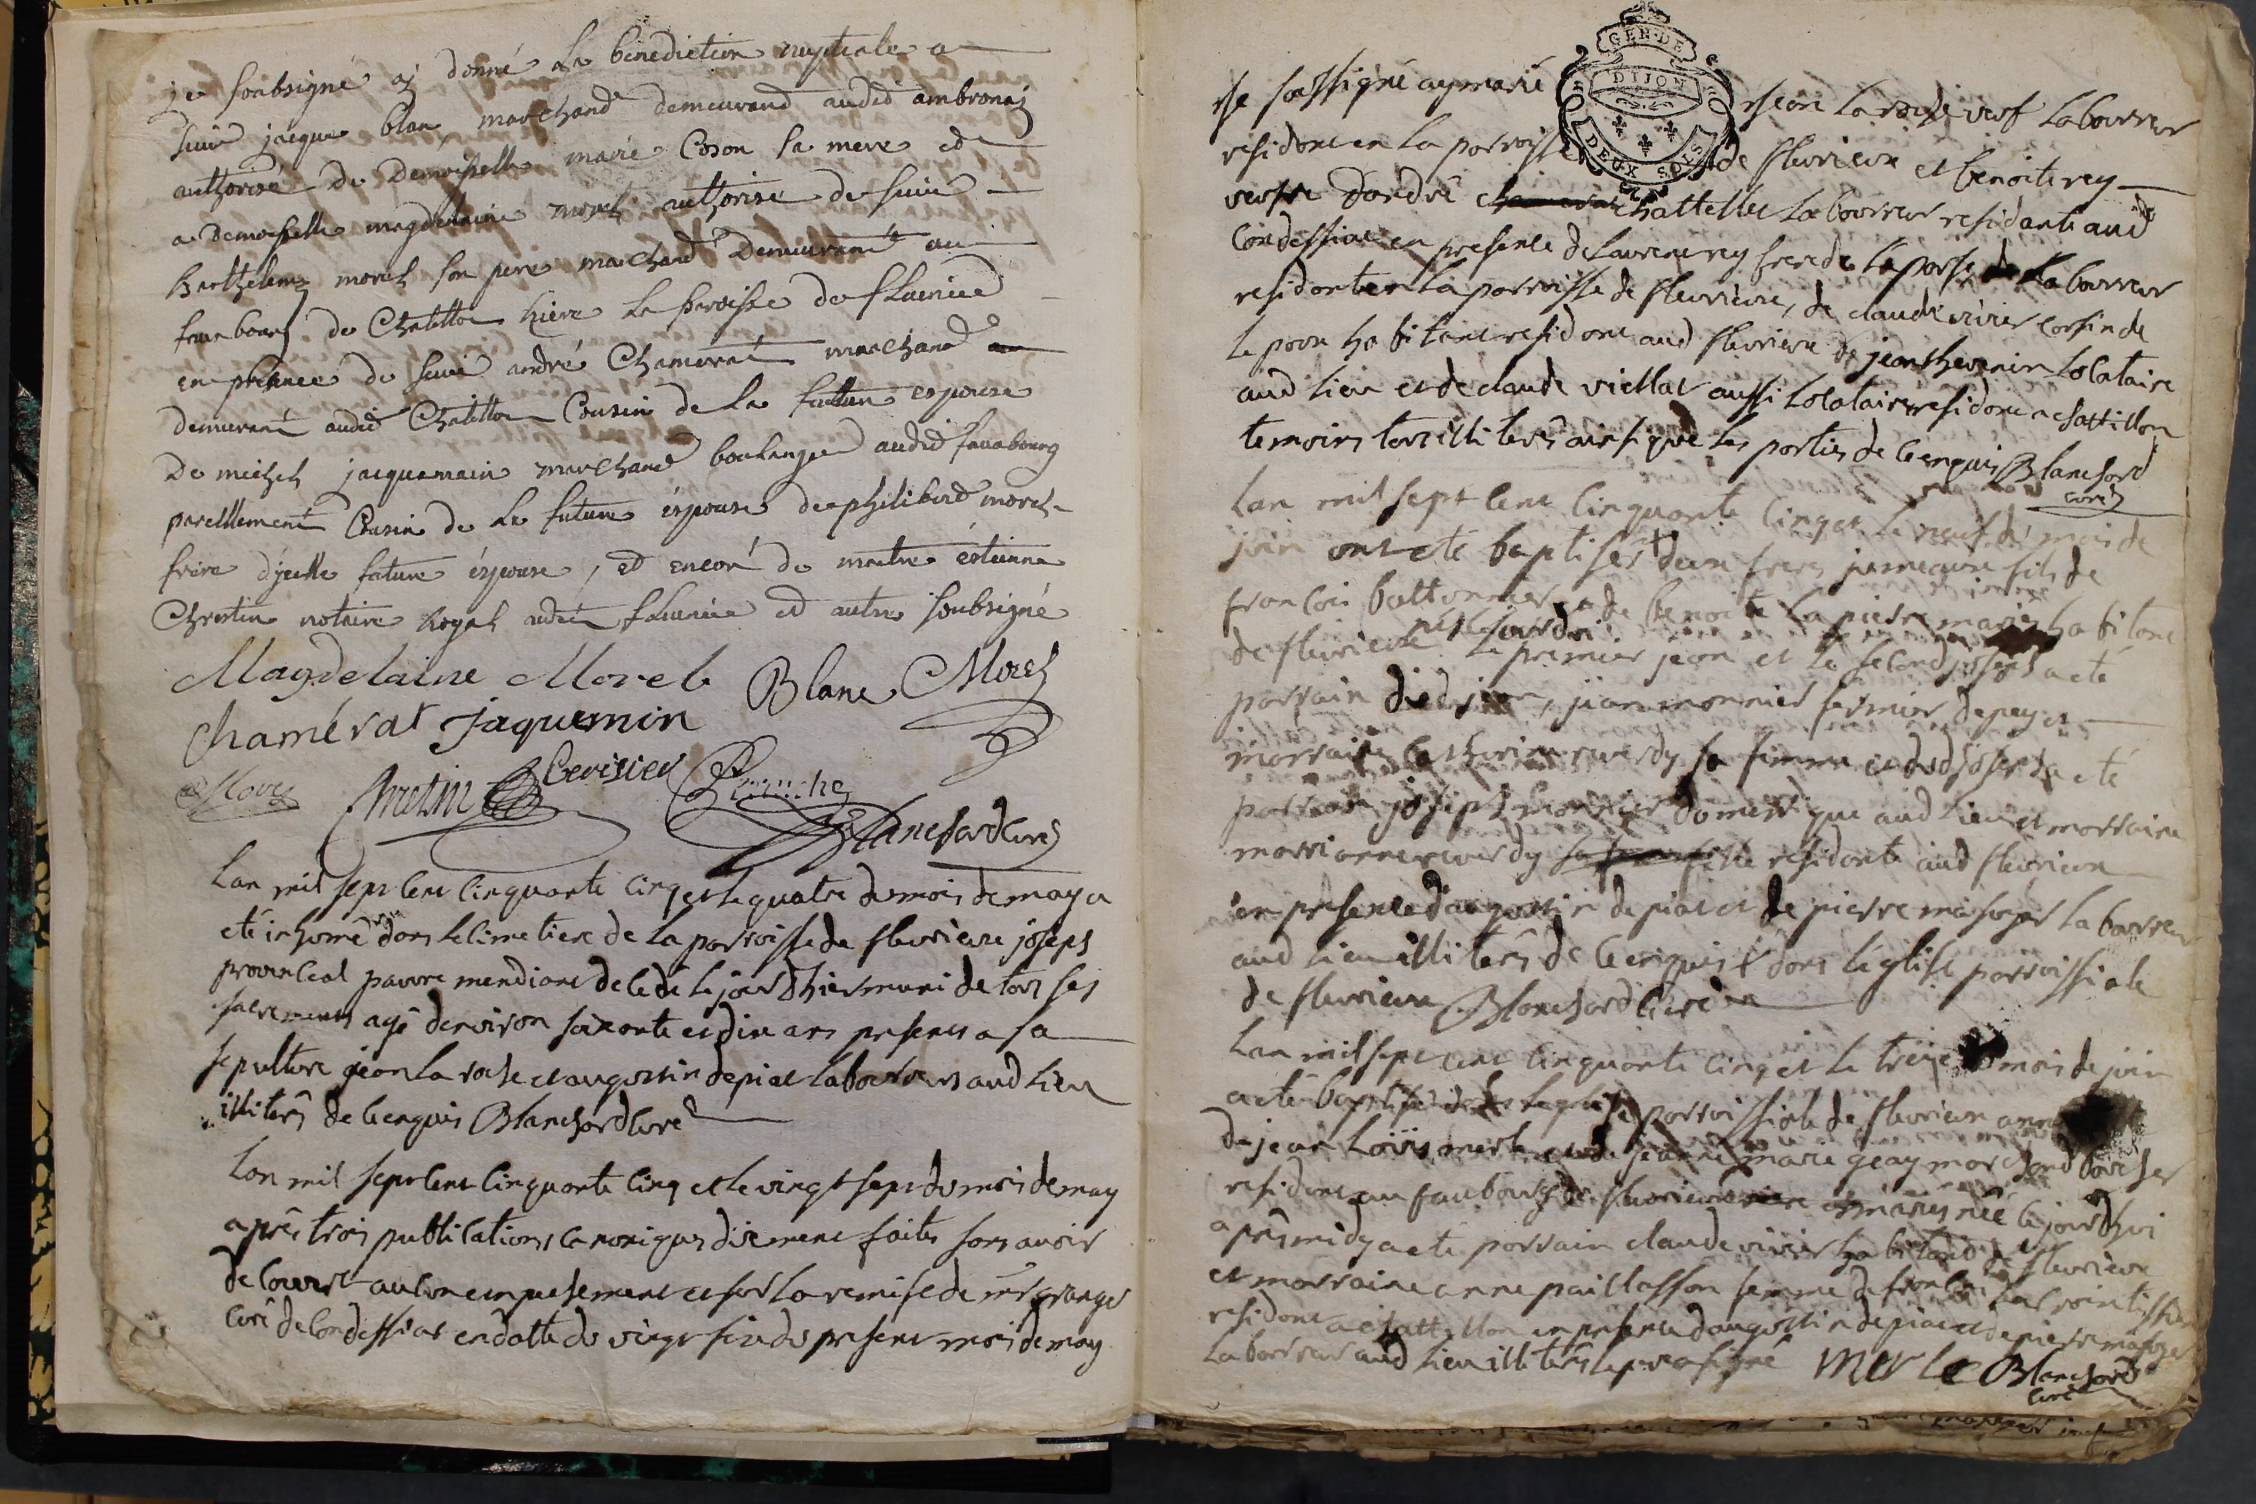 je soubsigné aj donné La benediction nuptiale a
sieur jacque blan marchand demeurand audit ambronaj
authorisé de Demoiselle marie Coson sa mere et
a Demoiselle magdelaine morel authorise de sieur
Barthelemy morel son pere marchand Demeurant au
fourbourg de Chatillon hiere La paroisse de fleurieu
en presence de sieur andré Chamerat marchand
demeurant audit Chatillon Cousin de La future espouse
De michel jacquemain marchand boulanger audit fauxbourg
pareillement Cousin de La future éspouse de philibert morel
frère d'jcelle future éspouse, et encoré de maitre estienne
Chrestin notaire Royal audit et autre soubsigné
Magdelaine Morel Blanc Morel
Chamérat jaquemin
Morel Chrestin Cerisier
Blanchard Curé
Lan mil sept cent Cinquante cinq et le quatre du mois de may a
eté inhumé dans le Cimetiere de la parroisse de fleurieux joseph
provincial pauvre mendiant decedé le jour d'hier muni de tous ses
sacrements agé denviron soixante et dix ans presents a sa
sepulture jean la roche et augustin depiat laboureurs aud lieu
illiterés de ce enquis Blanchard Curé
Lan mil sept cent Cinquante cinq et le vingt sept du mois de may
après trois publications canoniques düement faites sans avoir
decouvert aucun empechement et sur la remise de mr grange
curé de Condessiat en datte du vingt six du present mois de may
GEN. DE
DIJON
DEUX SOLS
Je sousigné ay marié jean la roche veuf laboureur
residant en la parroisse de fleurieux et benoite rey
veuve dandré chattellet laboureur residante aud
Condessiat en presence de laurent rey frere de laporse laboureur
residant en la parroisse de fleurieux, de claude vivier cousin de
le poux habitant residant aud fleurieux de jean thevenin locataire
aud lieu et de claude viellat aussi locataire residant a chattillon
temoins tous illiterés ainsi que les parties de ce enquis Blanchard
curé
Lan mil sept cent Cinquante Cinq et le neuf du mois de
juin ont eté baptisés deux freres jumeaux fils de
francois battonnier et de benoite la pierre mariés habitants
de fleurieux nés le jourdhui le premier jean et le second joseph a eté
parrain dud jean, jean monnier fermier depeyat
marraine Catherine sa femme et dud joseph a eté
parrain joseph monnier domestique aud lieu et marraine
marrianne fille residante aud fleurieux
en presence daugustin depiat et de pierre laboureur
aud lieu illiterés de ce enquis dans léglise parroissiale
de fleurieux Blanchard Curé
Lan mil sept cent Cinquante cinq et le treize du mois de juin
a eté baptisé dans leglise parroissiale de fleurieux anne
de jean Loüis merle et de jeanne marie geay marchand boucher
residant au faubourg de fleurieux mariés née le jourdhui
après midy a eté parrain claude vivier habitant de fleurieux
et marraine anne paillasson femme de francois tissier
residant a chattillon en presence daugustin depiat et de pierre
laboureur aud lieu illiterés le pere a signé Merle Blanchard
Curé